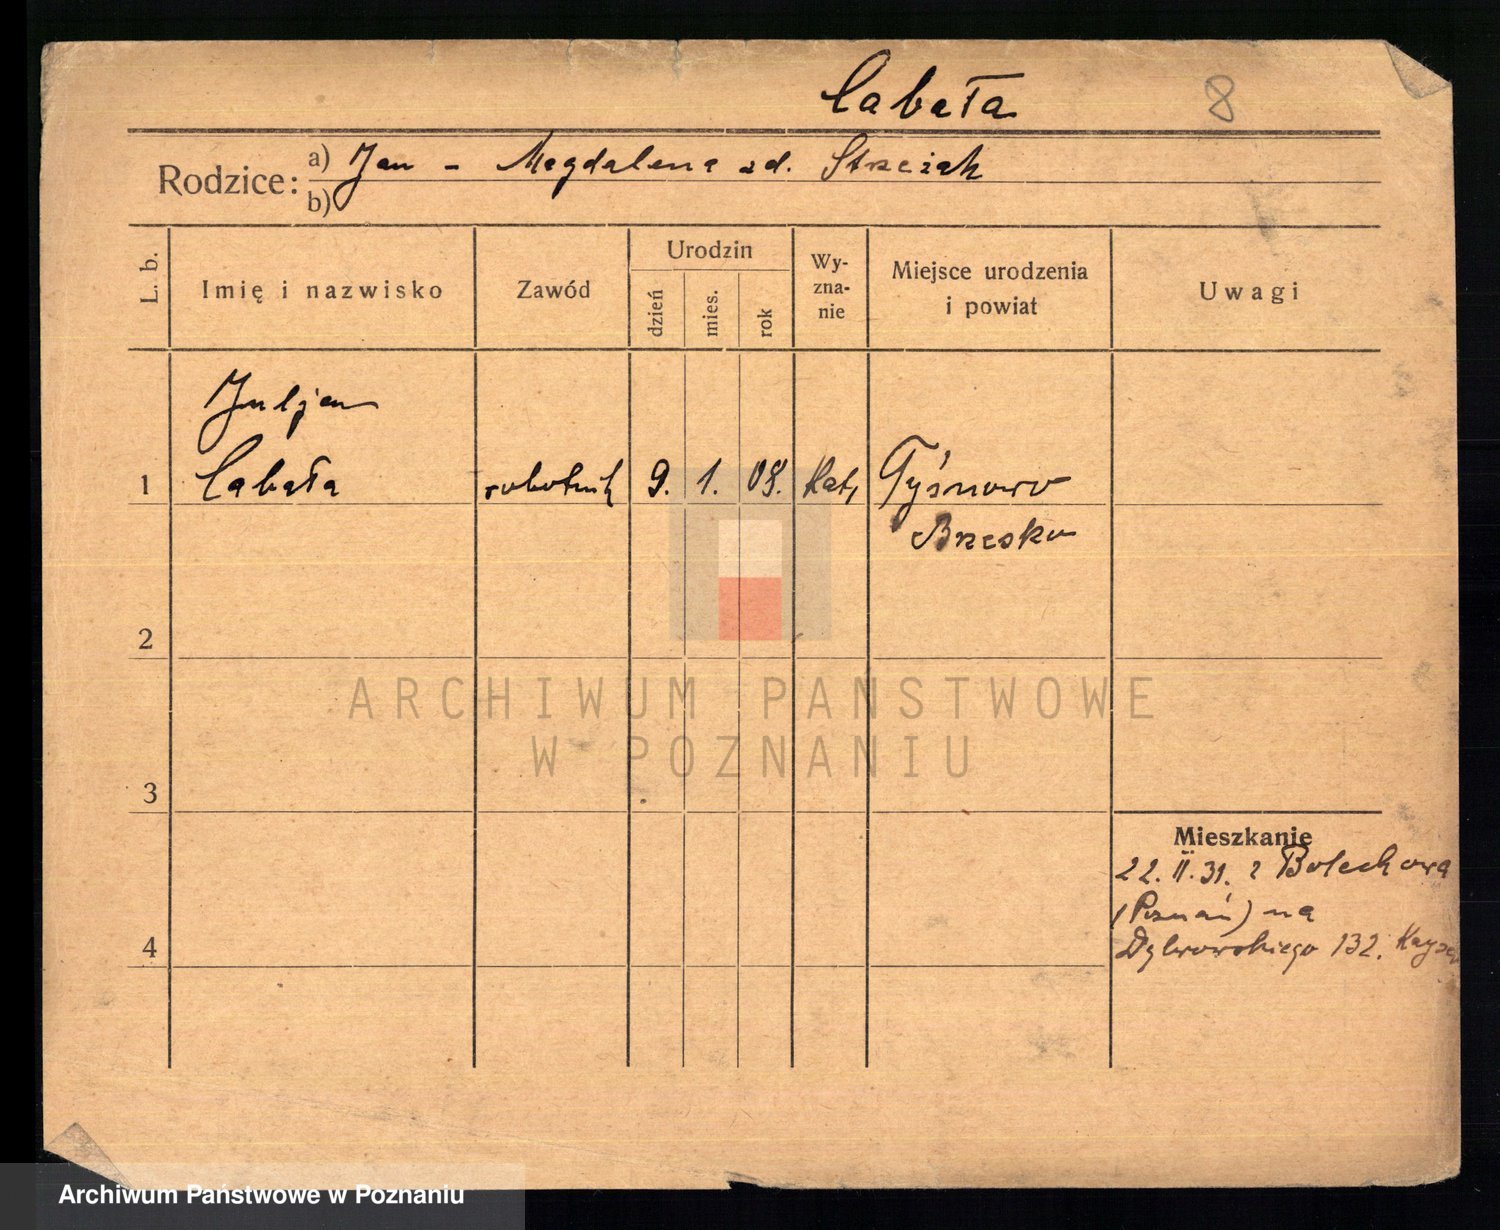 Cabała 8
Rodzice: a) Jan - Magdalena zd.
b)
L. b.
Imię i nazwisko
Zawód
Urodzin
dzień
mies.
rok
Wy-
zna-
nie
Miejsce urodzenia
i powiat
Uwagi
Juljan
1 Cabała robotnik 9. 1. 08. Kat,
Brzesko
2
3
4
Mieszkanie
22. II. 31. z Bolechowa
(Poznań) na
132.
ARCHIWUM PAŃSTWOWE
W POZNANIU
Archiwum Państwowe w Poznaniu